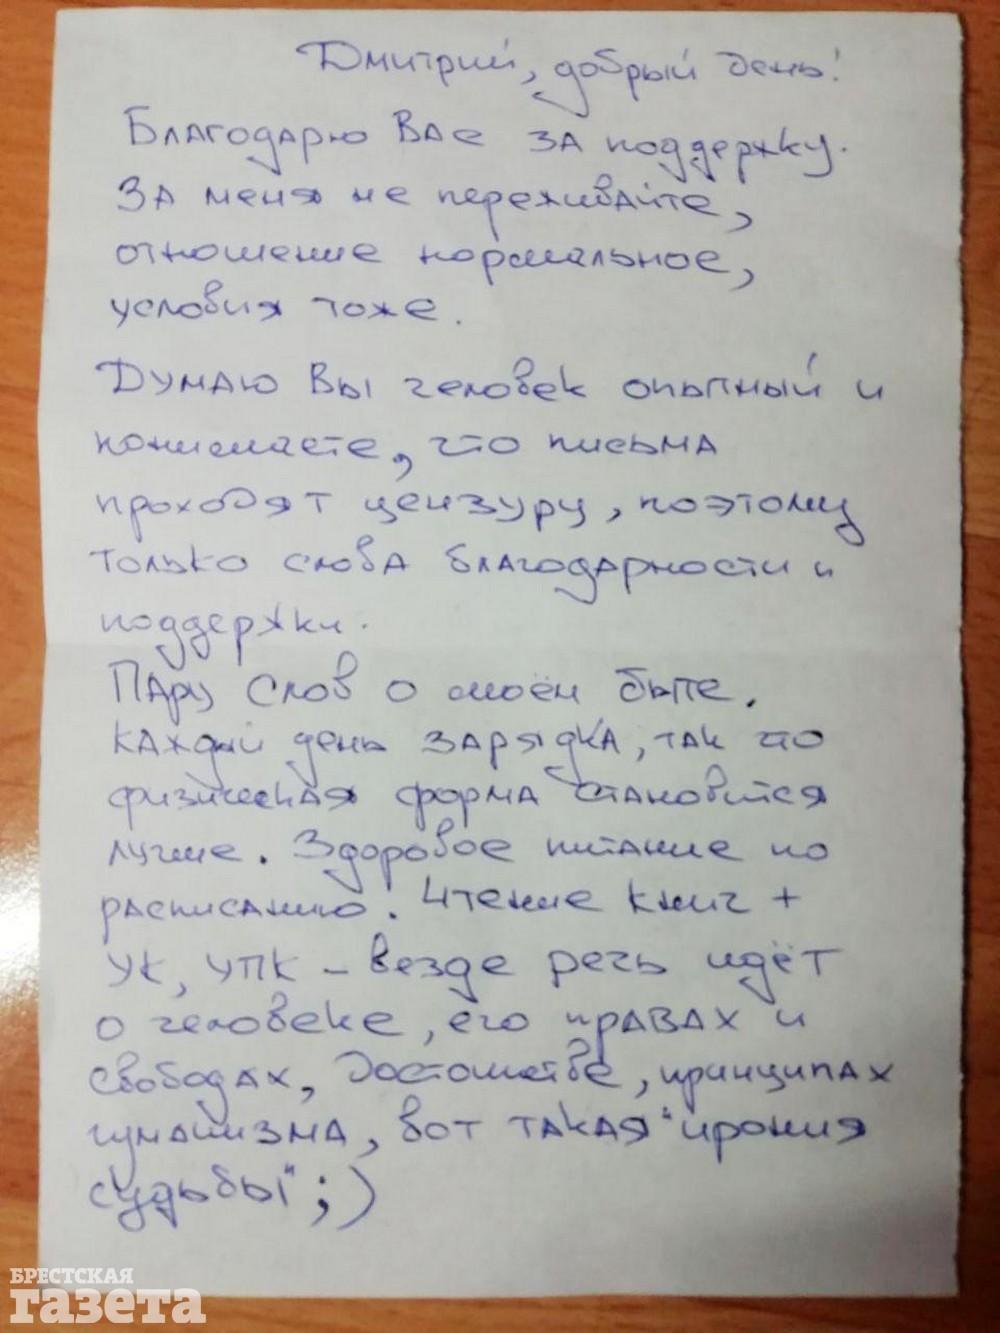 Дмитрий, добрый день!
Благодарю Вас за поддержку.
За меня не переживайте,
отношение нормальное,
условия тоже.
Думаю Вы человек опытный и
понимаете, что письма
проходят цензуру, поэтому
только слова благодарности и
поддержки.
Пару слов о моём быте.
Каждый день зарядка, так что
физическая форма становится
лучше. Здоровое питание по
расписанию. Чтение книг +
УК, УПК – везде речь идёт
о человеке, его правах и
свободах, достоинстве, принципах
гуманизма, вот такая "ирония
судьбы" ;)
БРЕСТСКАЯ
газета